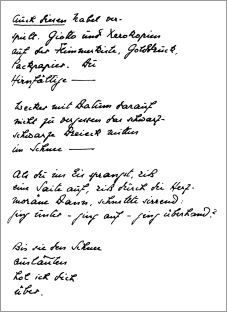 Auch diesen Nabel ver-
spielt. Giotto und Xerokopien
auf der Flimmerkiste, Golddruck,
Packpapier. Du
Hirnfällige —
Wecker mit Datum darauf
nicht zu vergessen das schwarz-
schwarze Dreieck mitten
im Schnee —
Als du ins Eis sprangst, riß
eine Saite auf, riß durch die Herz-
moräne Dann, schnellte sirrend:
ging unter - ging auf - ging überhand?
Bis sie den Schnee
ausläuten
hol ich dich
über.